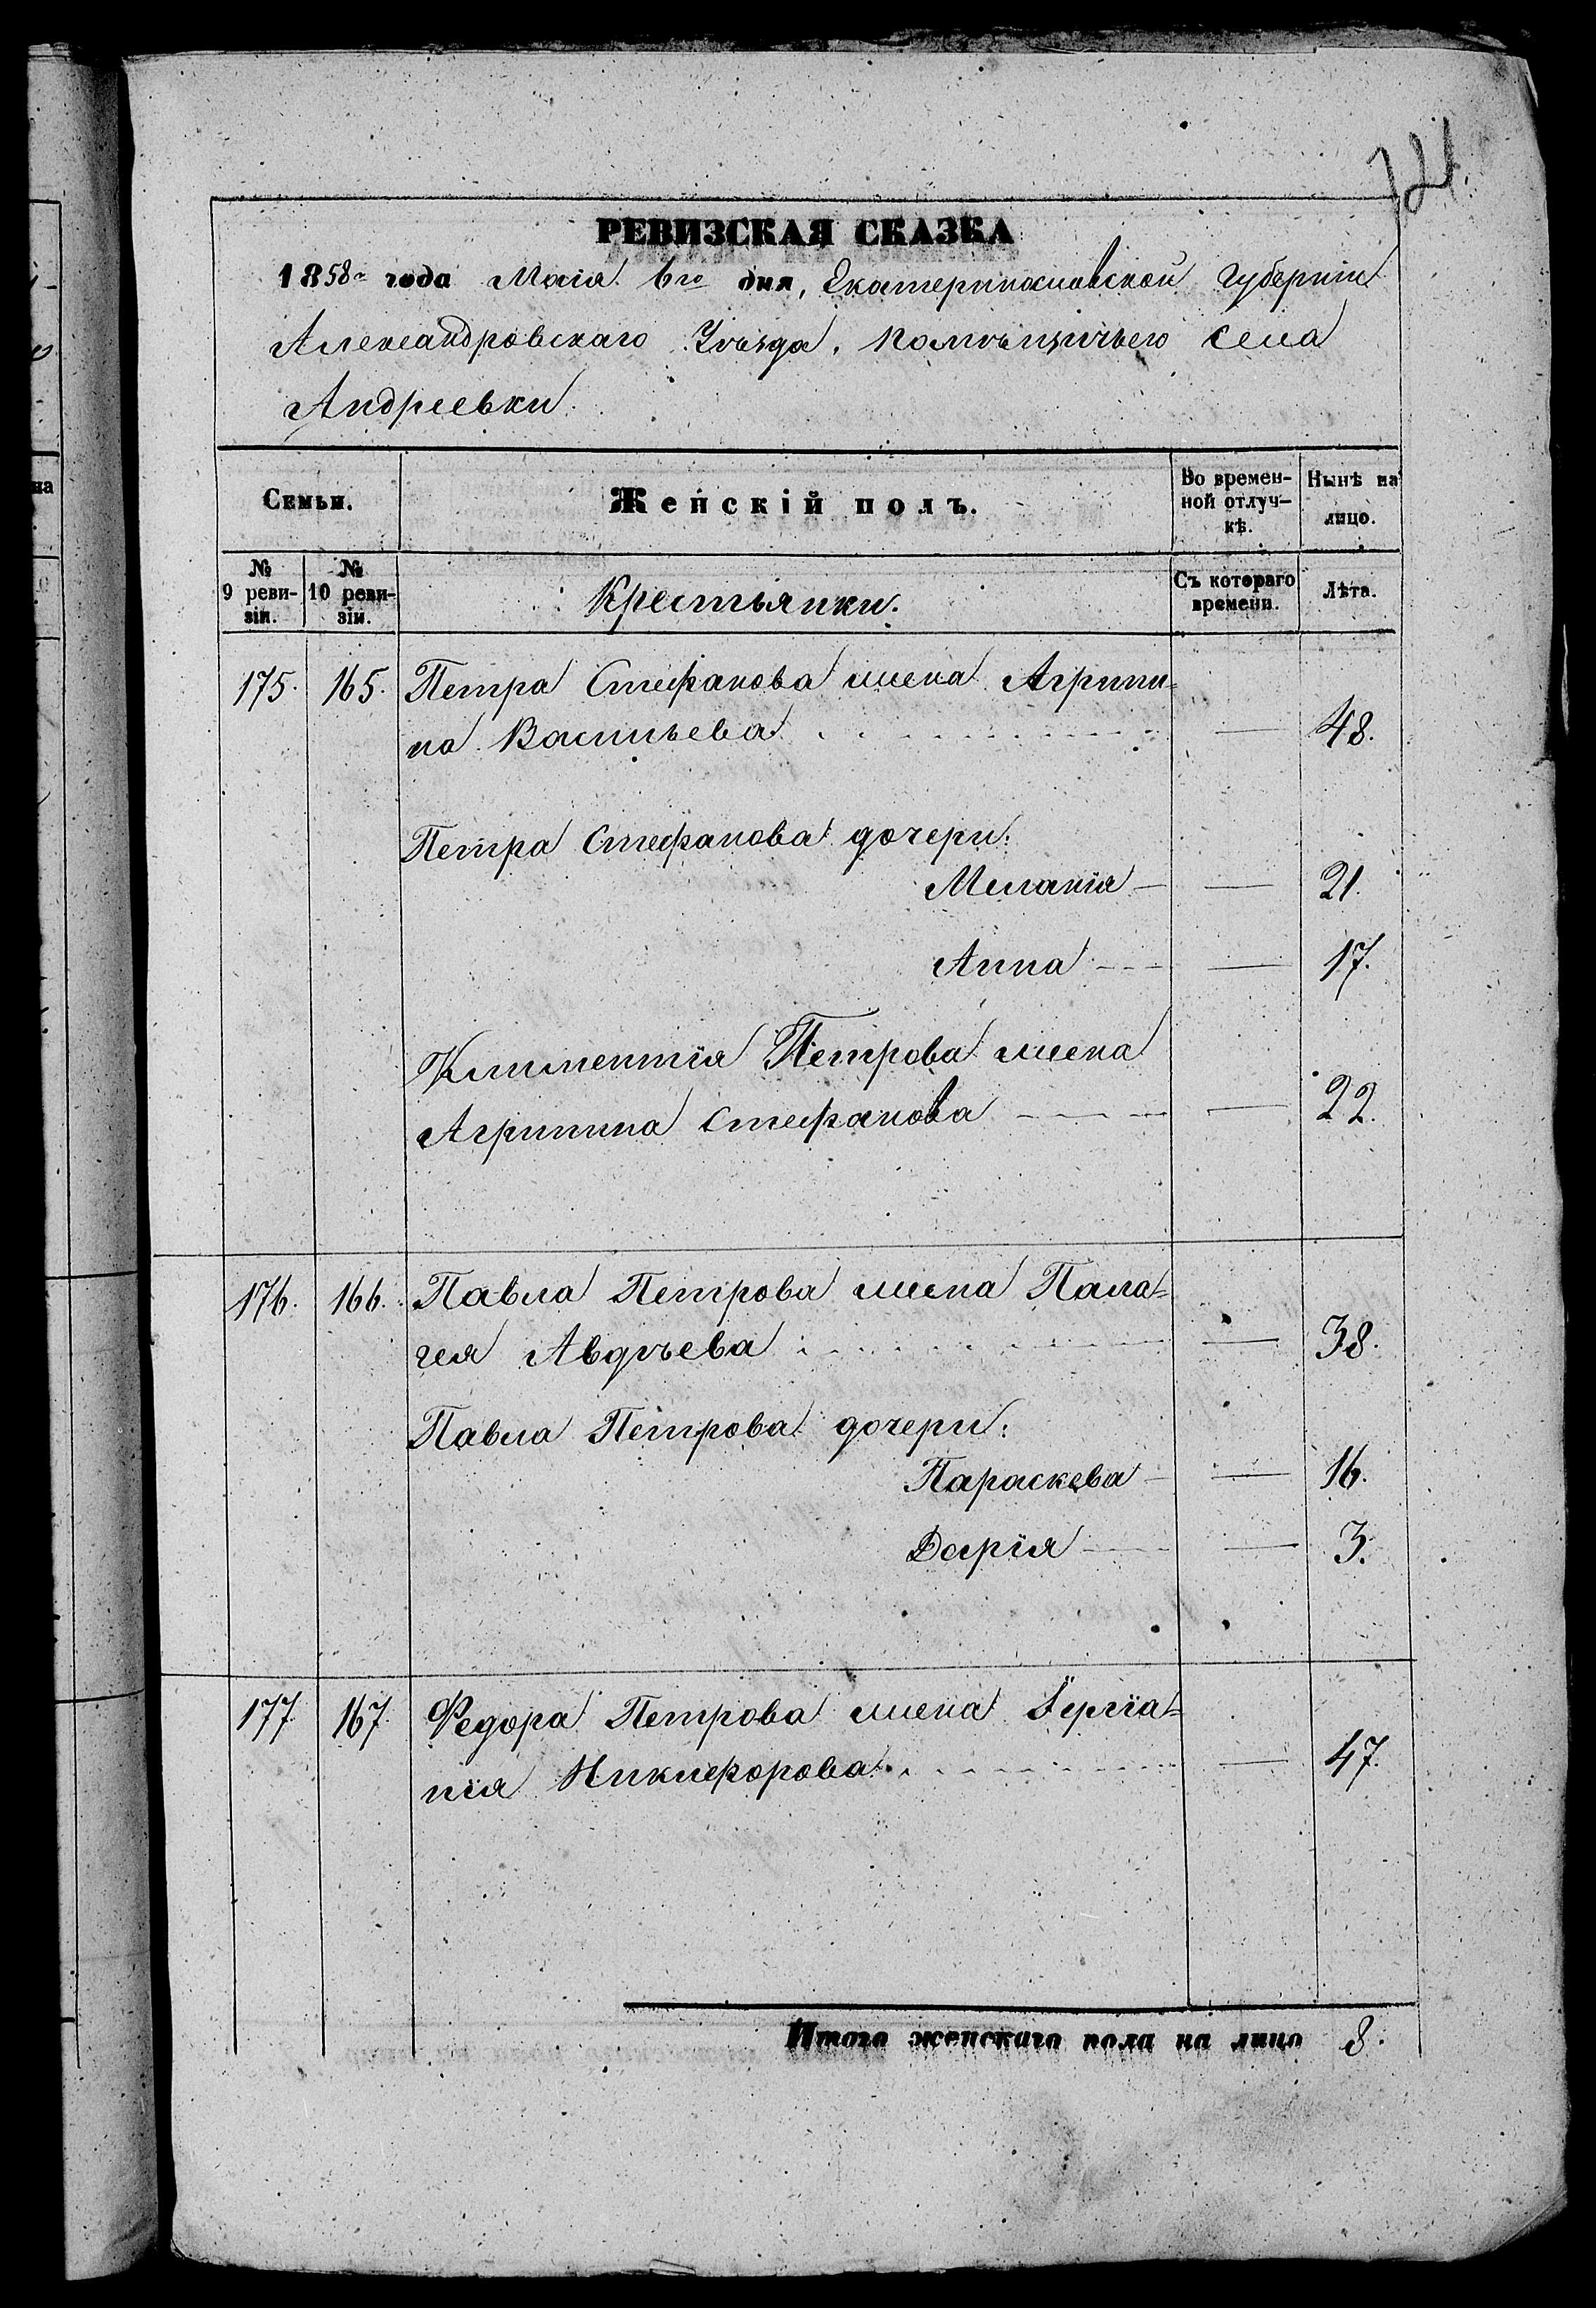 721.
РЕВИЗСКАЯ СКАЗКА
1858го года Маія 6го дня, Екатеринославской Губерніи
Александровскаго Уѣзда, помѣщичьего села
Андреевки.
Семьи.
Женскій полъ.
Во времен-
ной отлуч-
кѣ.
Нынѣ на
лицо.
№
9 реви-
зіи.
№
10 реви-
зіи.
Крестьянки.
Съ котораго
времени.
Лѣта.
175. 165. Петра Стефанова жена Агрипи=
на Васильева — 48.
Петра Стефанова дочери:
Меланія — 21.
Анна — 17.
Климентія Петрова жена
Агрипина Стефанова — 22.
176. 166. Павла Петрова жена Пала=
гея Авдѣева — 38.
Павла Петрова дочери:
Параскева — 16.
Дарія — 3.
177. 167. Федора Петрова жена
нія Никифорова — 47.
Итого женскаго пола на лицо 8.